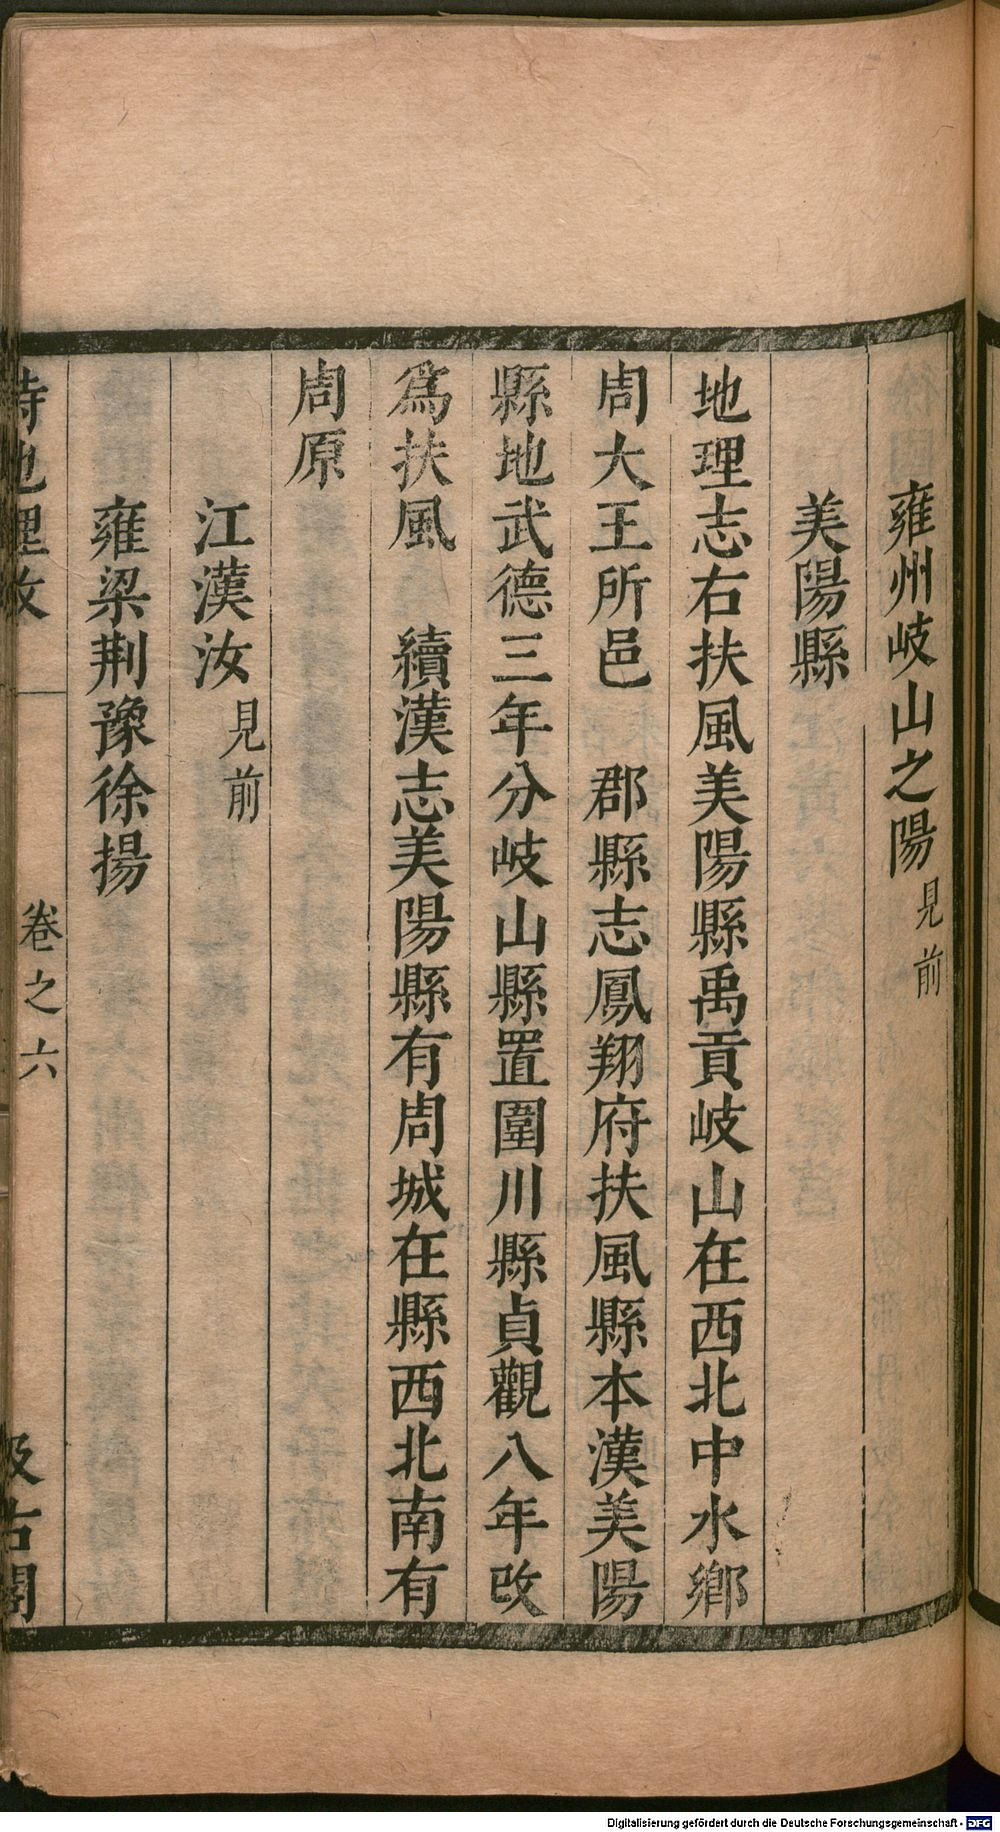 雍州岐山之陽見前
美陽縣
地理志右扶風美陽縣禹貢岐山在西北中水鄉
周大王所邑　郡縣志鳳翔府扶風縣本漢美陽
縣地武德三年分岐山縣置圍川縣貞觀八年改
為扶風　續漢志美陽縣有周城在縣西北南有
周原
江漢汝見前
雍梁荆豫徐揚
詩地理攷　卷之六　汲古閣
Digitalisierung gefördert durch die Deutsche Forschungsgemeinschaft - DFG